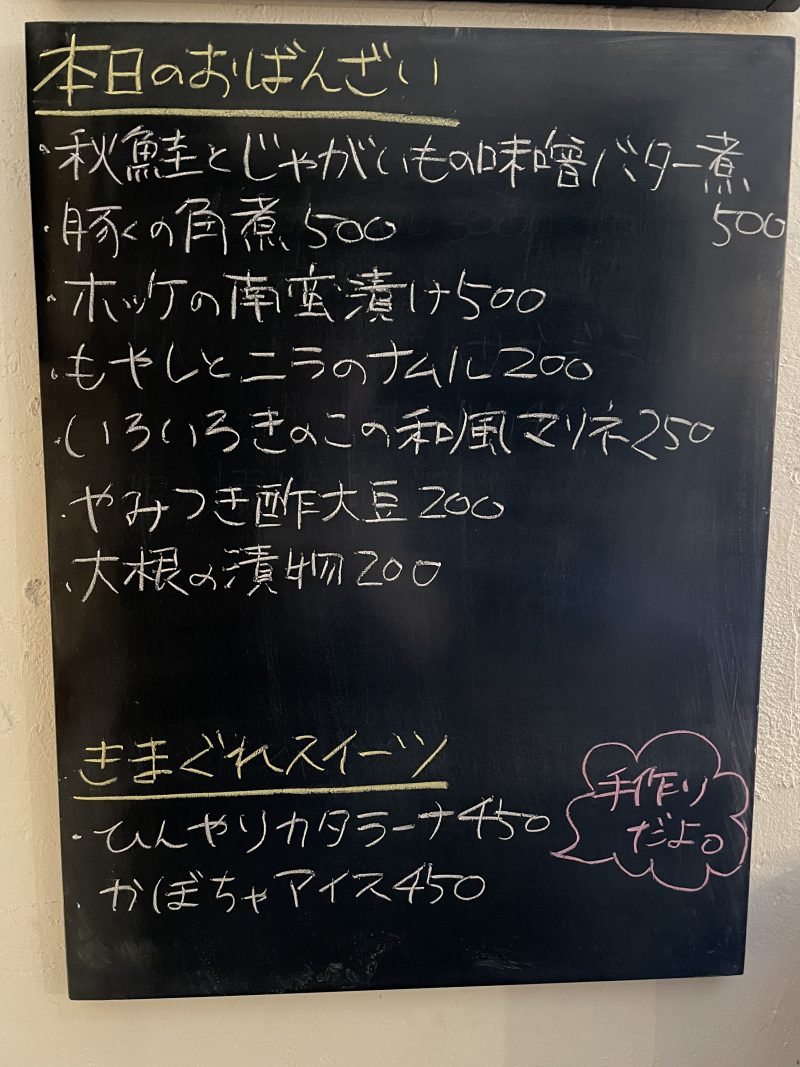 本日のおばんざい
・秋鮭とじゃがいもの味噌バター煮
500
・豚くの角煮 500
・ホッケの南蛮漬け500
・もやしとニラのナムル200
・いろいろきのこの和風マリネ250
・やみつき酢大豆200
・大根の漬物200
きまぐれスイーツ
・ひんやりカタラーナ450
・かぼちゃアイス450
手作り
だよ。